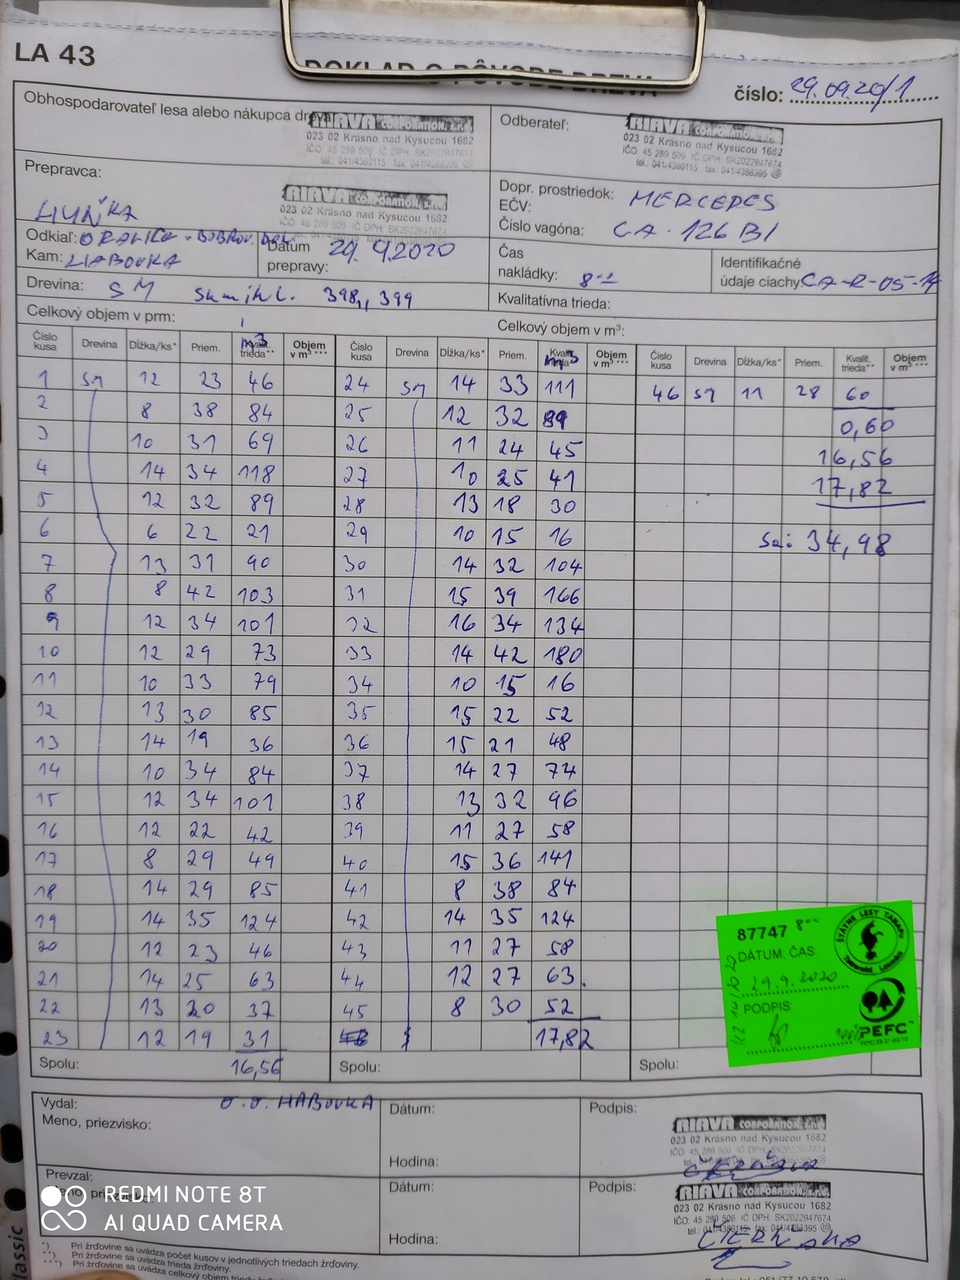 LA 43
DOKLAD O PÔVODE DREVA
číslo: 29.09.20/1
Obhospodarovateľ lesa alebo nákupca dreva
RIAVA CORPORATION, s.r.o.
023 02 Krásno nad Kysucou 1682
IČO: 45 280 506 IČ DPH: SK2022947674
tel.: 041/4386115 fax: 041/4386395
Odberateľ:
RIAVA CORPORATION, s.r.o.
023 02 Krásno nad Kysucou 1682
IČO: 45 280 506 IČ DPH: SK2022947674
tel.: 041/4386115 fax: 041/4386395
Prepravca:
HUŇKA
RIAVA CORPORATION, s.r.o.
023 02 Krásno nad Kysucou 1682
Dopr. prostriedok: MERCEDES
EČV:
Číslo vagóna: CA-126BI
Odkiaľ: ORAVICE - BOBROV. DOL.
Kam: HABOVKA
Dátum prepravy: 29.9.2020
Čas nakládky: 8 00
Identifikačné údaje ciachy: CA-R-05-14
Drevina: SM 398, 399
Kvalitatívna trieda:
Celkový objem v prm:
Celkový objem v m³:
Číslo kusa Drevina Dĺžka/ks* Priem. Kvalit. trieda** m3 Objem v m³ *** Číslo kusa Drevina Dĺžka/ks* Priem. m3 Objem v m³ *** Číslo kusa Drevina Dĺžka/ks* Priem. Kvalit. trieda** Objem v m³ ***
1 SM 12 23 46 24 SM 14 33 111 46 SM 11 28 60
2 8 38 84 25 12 32 89 0,60
3 10 31 69 26 11 24 45 16,56
4 14 34 118 27 10 25 41 17,82
5 12 32 89 28 13 18 30
6 6 22 21 29 10 15 16 Sa: 34,98
7 13 31 90 30 14 32 104
8 8 42 103 31 15 39 166
9 12 34 101 32 16 34 134
10 12 29 73 33 14 42 180
11 10 33 79 34 10 15 16
12 13 30 85 35 15 22 52
13 14 19 36 36 15 21 48
14 10 34 84 37 14 27 74
15 12 34 101 38 13 32 96
16 12 22 42 39 11 27 58
17 8 29 49 40 15 36 141
18 14 29 85 41 8 38 84
19 14 35 124 42 14 35 124
20 12 23 46 43 11 27 58
21 14 25 63 44 12 27 63.
22 13 20 37 45 8 30 52
23 12 19 31 17,82
Spolu: 16,56 Spolu: Spolu:
87747 8 00
DÁTUM, ČAS:
29.9.2020
PODPIS:
ŠTÁTNE LESY TANAPu
Tatranská Lomnica
PEFC™
Vydal: O.O. HABOVKA
Meno, priezvisko:
Dátum:
Hodina:
Podpis:
RIAVA CORPORATION, s.r.o.
023 02 Krásno nad Kysucou 1682
Prevzal:
Dátum:
Hodina:
Podpis:
RIAVA CORPORATION, s.r.o.
023 02 Krásno nad Kysucou 1682
IČO: 45 280 506 IČ DPH: SK2022947674
REDMI NOTE 8T
AI QUAD CAMERA
*) Pri žrďovine sa uvádza počet kusov v jednotlivých triedach žrďoviny.
**) Pri žrďovine sa uvádza trieda žrďoviny.
***) Pri žrďovine sa uvádza celkový objem